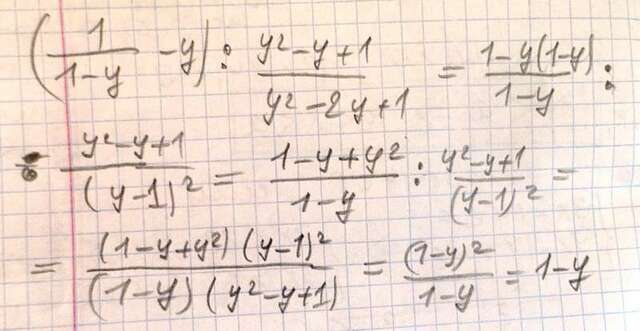 (1/(1-y) - y) : (y²-y+1)/(y²-2y+1) = (1-y(1-y))/(1-y) :
: (y²-y+1)/(y-1)² = (1-y+y²)/(1-y) : (y²-y+1)/(y-1)² =
= ((1-y+y²)(y-1)²)/((1-y)(y²-y+1)) = (1-y)²/(1-y) = 1-y